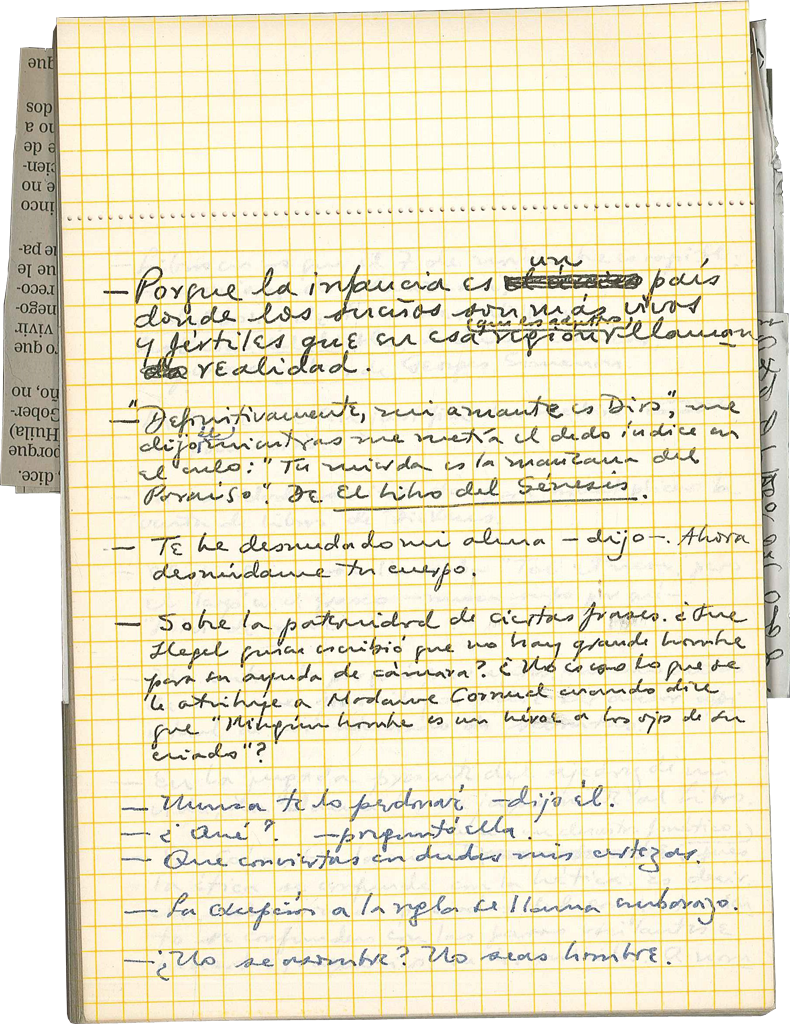 — Porque la infancia es un país
donde los sueños son más vivos
y fértiles que en esa región llaman
realidad.
— "Definitivamente, mi amante es Dios", me
dijo él mientras me metía el dedo índice en
el culo: "Tu mierda es la manzana del
Paraíso". De El Libro del Génesis.
— Te he desnudado mi alma —dijo—. Ahora
desnúdame tu cuerpo.
— Sobre la paternidad de ciertas frases. ¿Fue
Hegel quien escribió que no hay grande hombre
para su ayuda de cámara? ¿No es como lo que se
le atribuye a Madame Cornuel cuando dice
que "Ningún hombre es un héroe a los ojos de su
criado"?
— Nunca te lo perdonaré —dijo él.
— ¿Qué? —preguntó ella.
— Que conviertas en dudas mis certezas.
— La excepción a la regla se llama embarazo.
— ¿No se asombre? No seas hombre.
, dice.
porque
Huila)
Gober-
ño, no
ro que
vivir
nego-
reco-
ue le
de pa-
inco
e no
cien-
e de
no a
dos
que